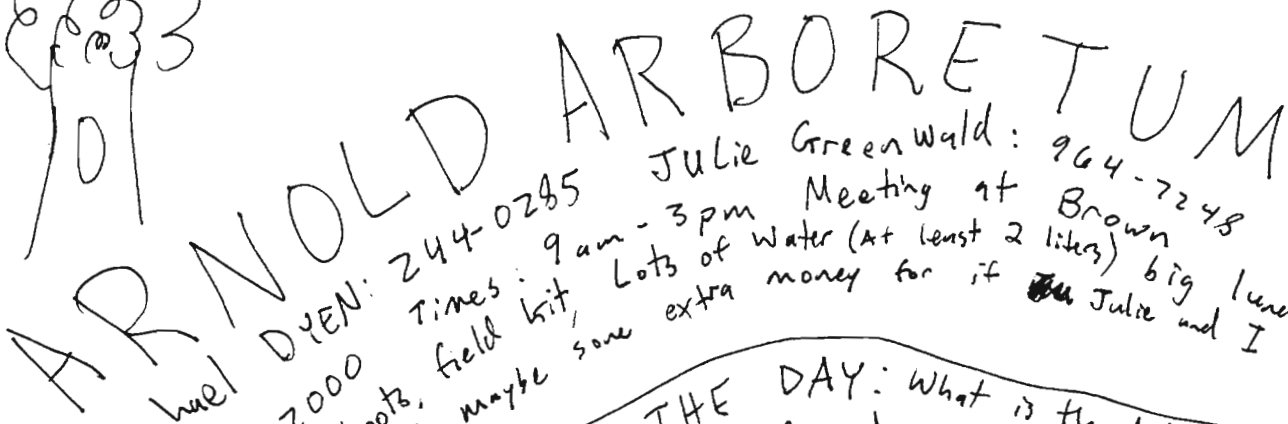 ARNOLD ARBORETUM
hael DYEN: 244-0285 Julie Greenwald: 964-7248
2000 Times: 9am-3pm Meeting at Brown
field kit, Lots of Water (At least 2 liters) big
maybe some extra money for if Julie and I
THE DAY: What is the